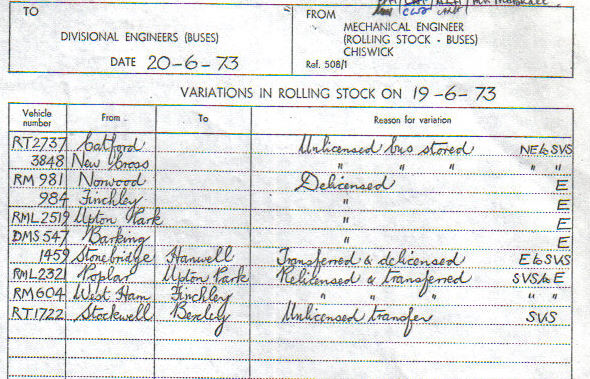 TO
FROM
MECHANICAL ENGINEER
DIVISIONAL ENGINEERS (BUSES)
(ROLLING STOCK - BUSES)
CHISWICK
DATE 20-6-73
Ref. 508/1
VARIATIONS IN ROLLING STOCK ON 19-6-73
Vehicle number From To Reason for variation
RT2737 Catford Unlicensed bus stored NE to SVS
3848 New Cross " " " " "
RM 981 Norwood Delicensed E
984 Finchley " E
RML2519 Upton Park " E
DMS 547 Barking " E
1459 Stonebridge Hanwell Transferred & delicensed E to SVS
RML2321 Poplar Upton Park Relicensed & transferred SVS to E
RM604 West Ham Finchley " " " " "
RT1722 Stockwell Bexley Unlicensed transfer SVS